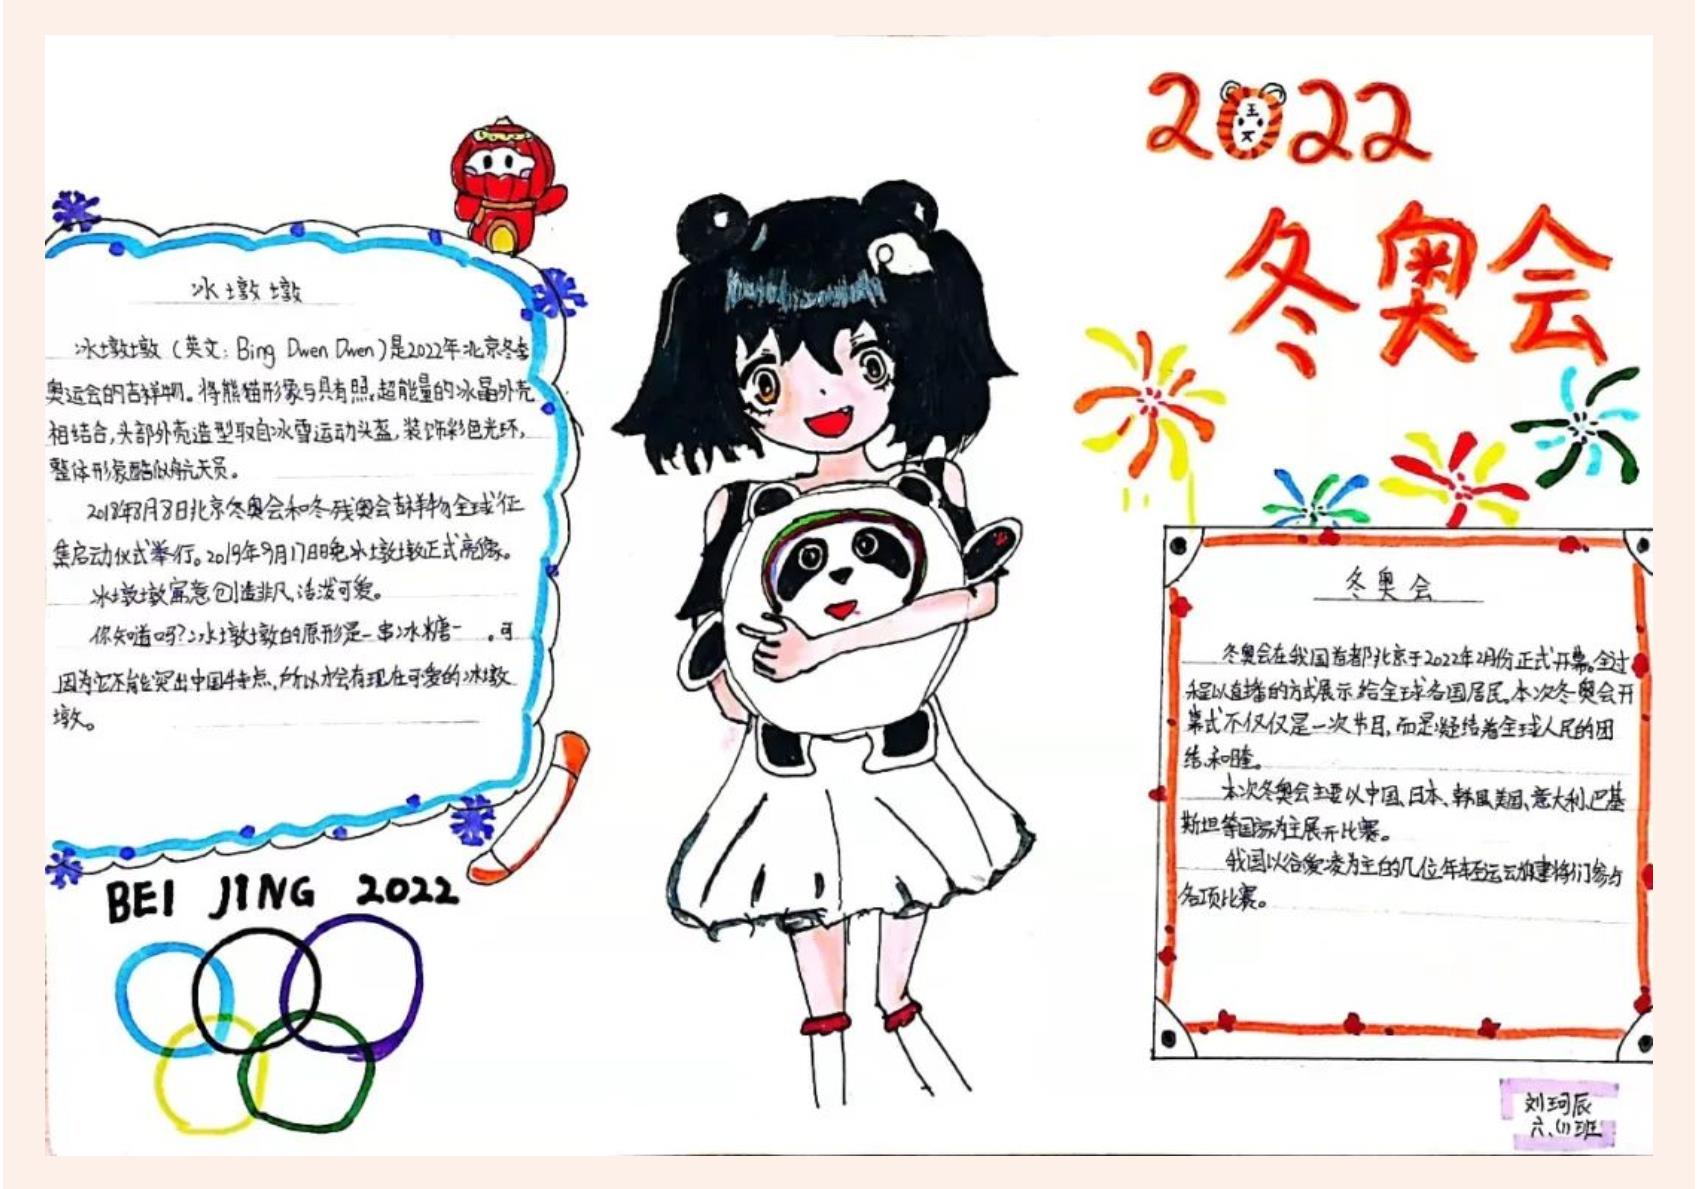 2022
冬奥会
冰墩墩
冰墩墩（英文：Bing Dwen Dwen）是2022年北京冬季
奥运会的吉祥物。将熊猫形象与具有超能量的冰晶外壳
相结合，头部外壳造型取自冰雪运动头盔，装饰彩色光环，
整体形象酷似航天员。
2018年8月8日北京冬奥会和冬残奥会吉祥物全球征
集启动仪式举行。2019年9月17日晚冰墩墩正式亮像。
冰墩墩寓意创造非凡、活泼可爱。
你知道吗？冰墩墩的原形是一串冰糖。可
因为它不能突出中国特点，所以才会有现在可爱的冰墩
墩。
BEI JING 2022
冬奥会
冬奥会在我国首都北京于2022年2月份正式开幕。全过
程以直播的方式展示给全球各国居民。本次冬奥会开
幕式不仅仅是一次节目，而是凝结着全球人民的团
结、和睦。
本次冬奥会主要以中国、日本、韩国、美国、意大利、巴基
斯坦等国家为主展开比赛。
我国以谷爱凌为主的几位年轻运动健将们参与
各项比赛。
刘珂辰
六、(1)班